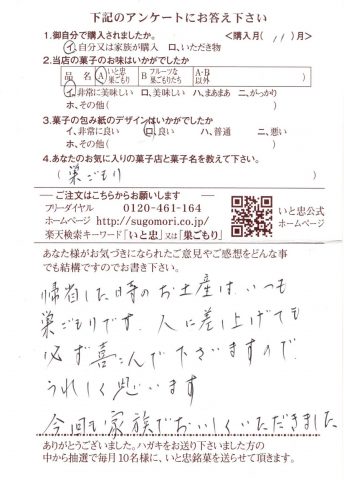 下記のアンケートにお答え下さい
1.御自分で購入されましたか。 <購入月( 11 )月>
イ、自分又は家族が購入 ロ、いただき物
2.当店の菓子のお味はいかがでしたか
品 名 A いと忠巣ごもり B フルーツな巣ごもりたち A・B以外
イ、非常に美味しい ロ、美味しい ハ、まあまあ ニ、がっかり
ホ、その他( )
3.菓子の包み紙のデザインはいかがでしたか
イ、非常に良い ロ、良い ハ、普通 ニ、悪い
ホ、その他( )
4.あなたのお気に入りの菓子店と菓子名を教えて下さい。
( 巣ごもり )
ご注文はこちらからお願いします
フリーダイヤル 0120-461-164
ホームページ http://sugomori.co.jp/
楽天検索キーワード「いと忠」又は「巣ごもり」
いと忠公式
ホームページ
あなた様がお気づきになられたご意見やご感想をどんな事
でも結構ですのでお書き下さい。
帰省した時のお土産は いつも
巣ごもりです。人に差し上げても
必ず喜こんで下さいますので
うれしく思います
今回も家族でおいしくいただきました
ありがとうございました。ハガキをお送り下さいました方の
中から抽選で毎月10名様に、いと忠銘菓を送らせて頂きます。